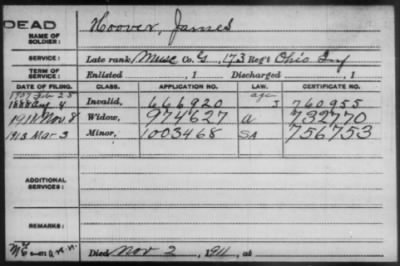 DEAD
NAME OF SOLDIER: Hoover, James
SERVICE: Late rank, Musc Co. G, 173 Reg't Ohio Inf
TERM OF SERVICE: Enlisted , 1 Discharged , 1
DATE OF FILING. CLASS. APPLICATION NO. LAW. CERTIFICATE NO.
1907 Feb 25 age
1888 Aug 4 Invalid, 666920 J 760955
1911 Nov 8 Widow, 974627 a 732770
1913 Mar 3 Minor, 1003468 SA 756753
ADDITIONAL SERVICES:
REMARKS:
Died Nov 2, 1911, at